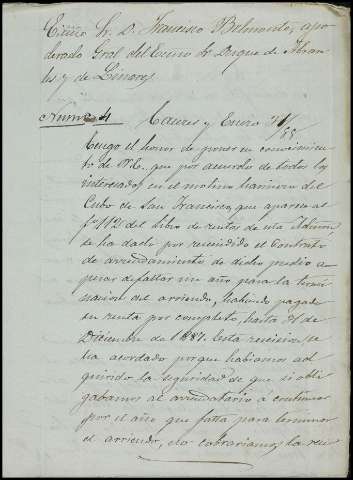 Excmo Sr. D. Francisco Belmonte, apo-
derado Gral del Excmo Sr Duque de Abran-
tes y de Linares
Numo 4
Caceres y Enero 31/88
Tengo el honor de poner en conocimien-
to de V.E., que por acuerdo de todos los
interesados en el molino harinero del
Cubo de San Francisco, que aparece al
fº 112 del libro de rentas de esta Admon,
se ha dado por rescindido el contrato
de arrendamiento de dicho predio a
pesar de faltar un año para la termi-
nacion del arriendo, habiendo pagado
su renta por completo, hasta 31 de
Diciembre de 1887. Esta rescision, se
ha acordado porque habiamos ad-
quirido la seguridad de que si obli-
gabamos al arrendatario a continuar
por el año que falta para terminar
el arriendo, no cobrariamos la ren-